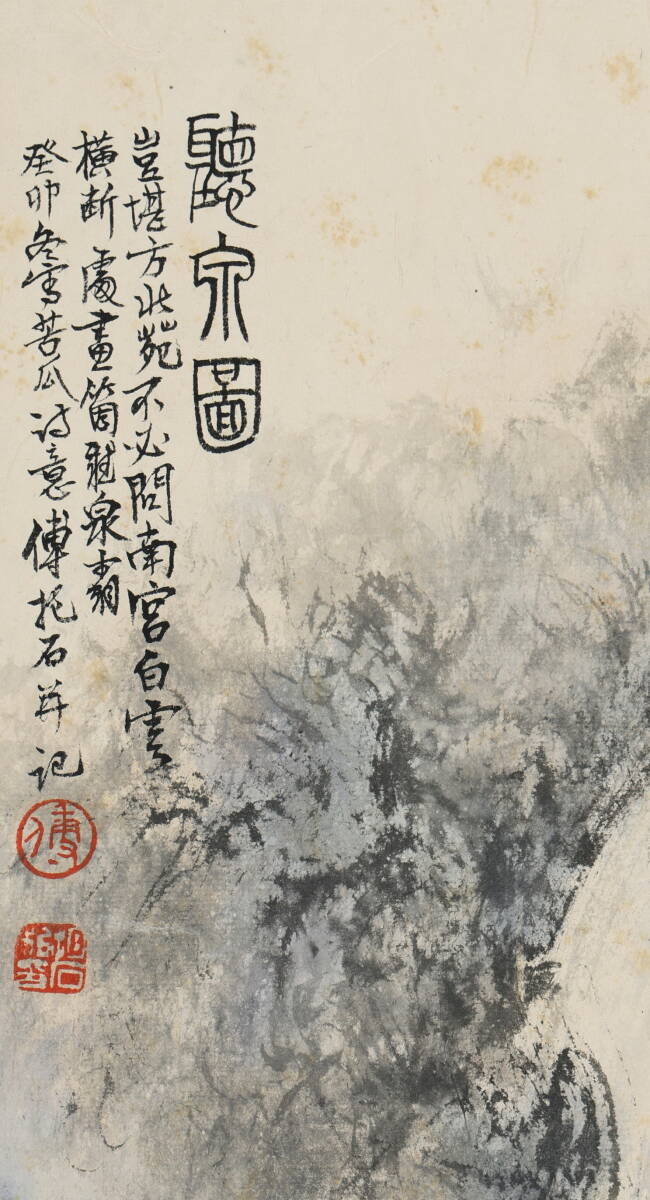 聽泉圖
豈堪方北苑不必問南宮白雲
橫斷處畫箇聽泉翁
癸卯冬寫苦瓜詩意傅抱石并記
傅